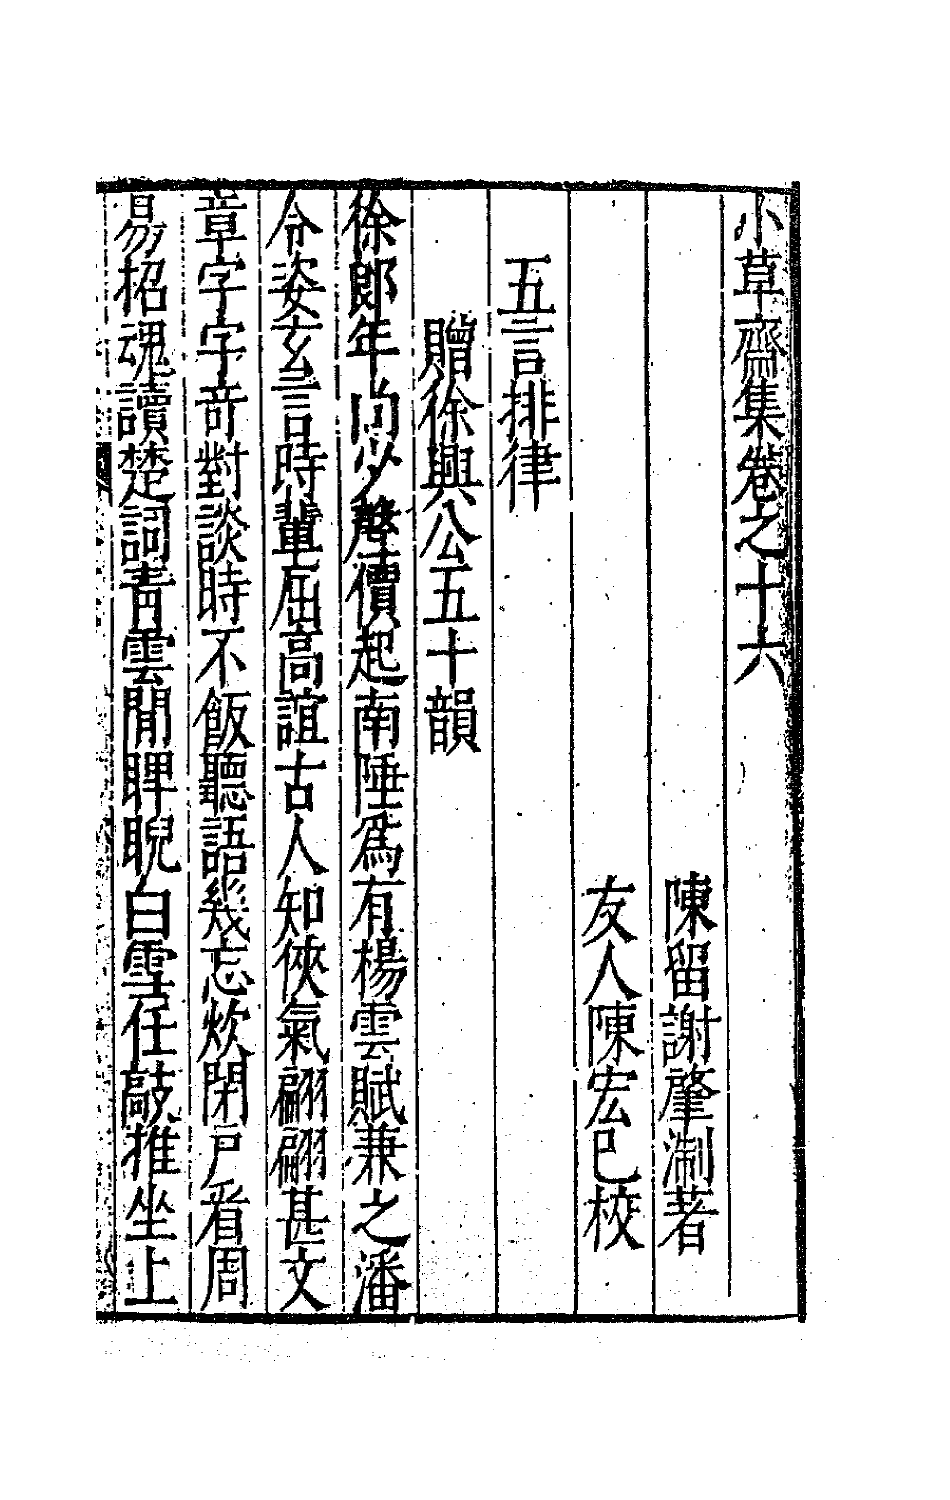 小草齋集卷之十六
陳留謝肇淛著
友人陳宏已校
五言排律
贈徐興公五十韻
徐郞年尚少聲價起南陲爲有楊雲賦兼之潘
令姿玄言時輩屈高誼古人知俠氣翩翩甚文
章字字奇對談時不飯聽語幾忘炊閉戸看周
易招魂讀楚詞靑雲閒睥睨白雪任敲推坐上